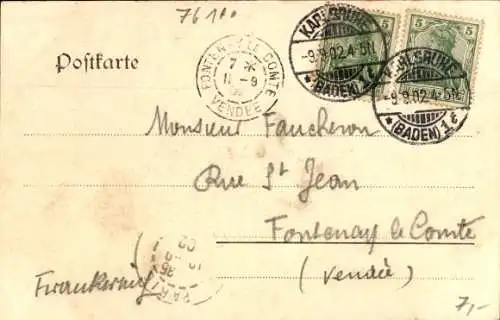 76100
Postkarte
KARLSRUHE
-9.9.02.4-5N.
*(BADEN)1ℓ
5
5
KARLSRUHE
-9.9.02.4-5N.
*(BADEN)1ℓ
FONTENAY LE COMTE
7 *
11-9
02
VENDÉE
Monsieur Faucheron
Rue St Jean
Fontenay le Comte
(Vendée)
PARIS
Frankreich
7,-